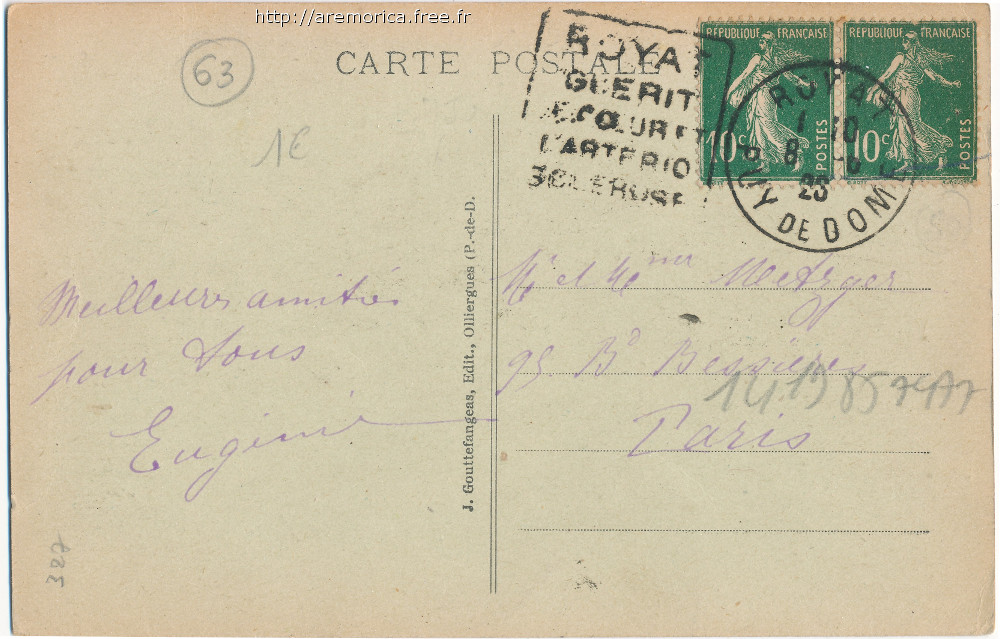 http://aremorica.free.fr
63
CARTE POSTALE
1€
ROYAT
GUERIT
LE CŒUR ET
L'ARTERIO
SCLEROSE
REPUBLIQUE FRANÇAISE
10c
POSTES
REPUBLIQUE FRANÇAISE
10c
POSTES
ROYAT
1 10
8
PUY DE DOME
Meilleures amitiés
pour tous
Eugénie
J. Gouttefangeas, Edit., Olliergues (P.-de-D.
Mr et Me Metzger
95 Bd Bessières
Paris
387